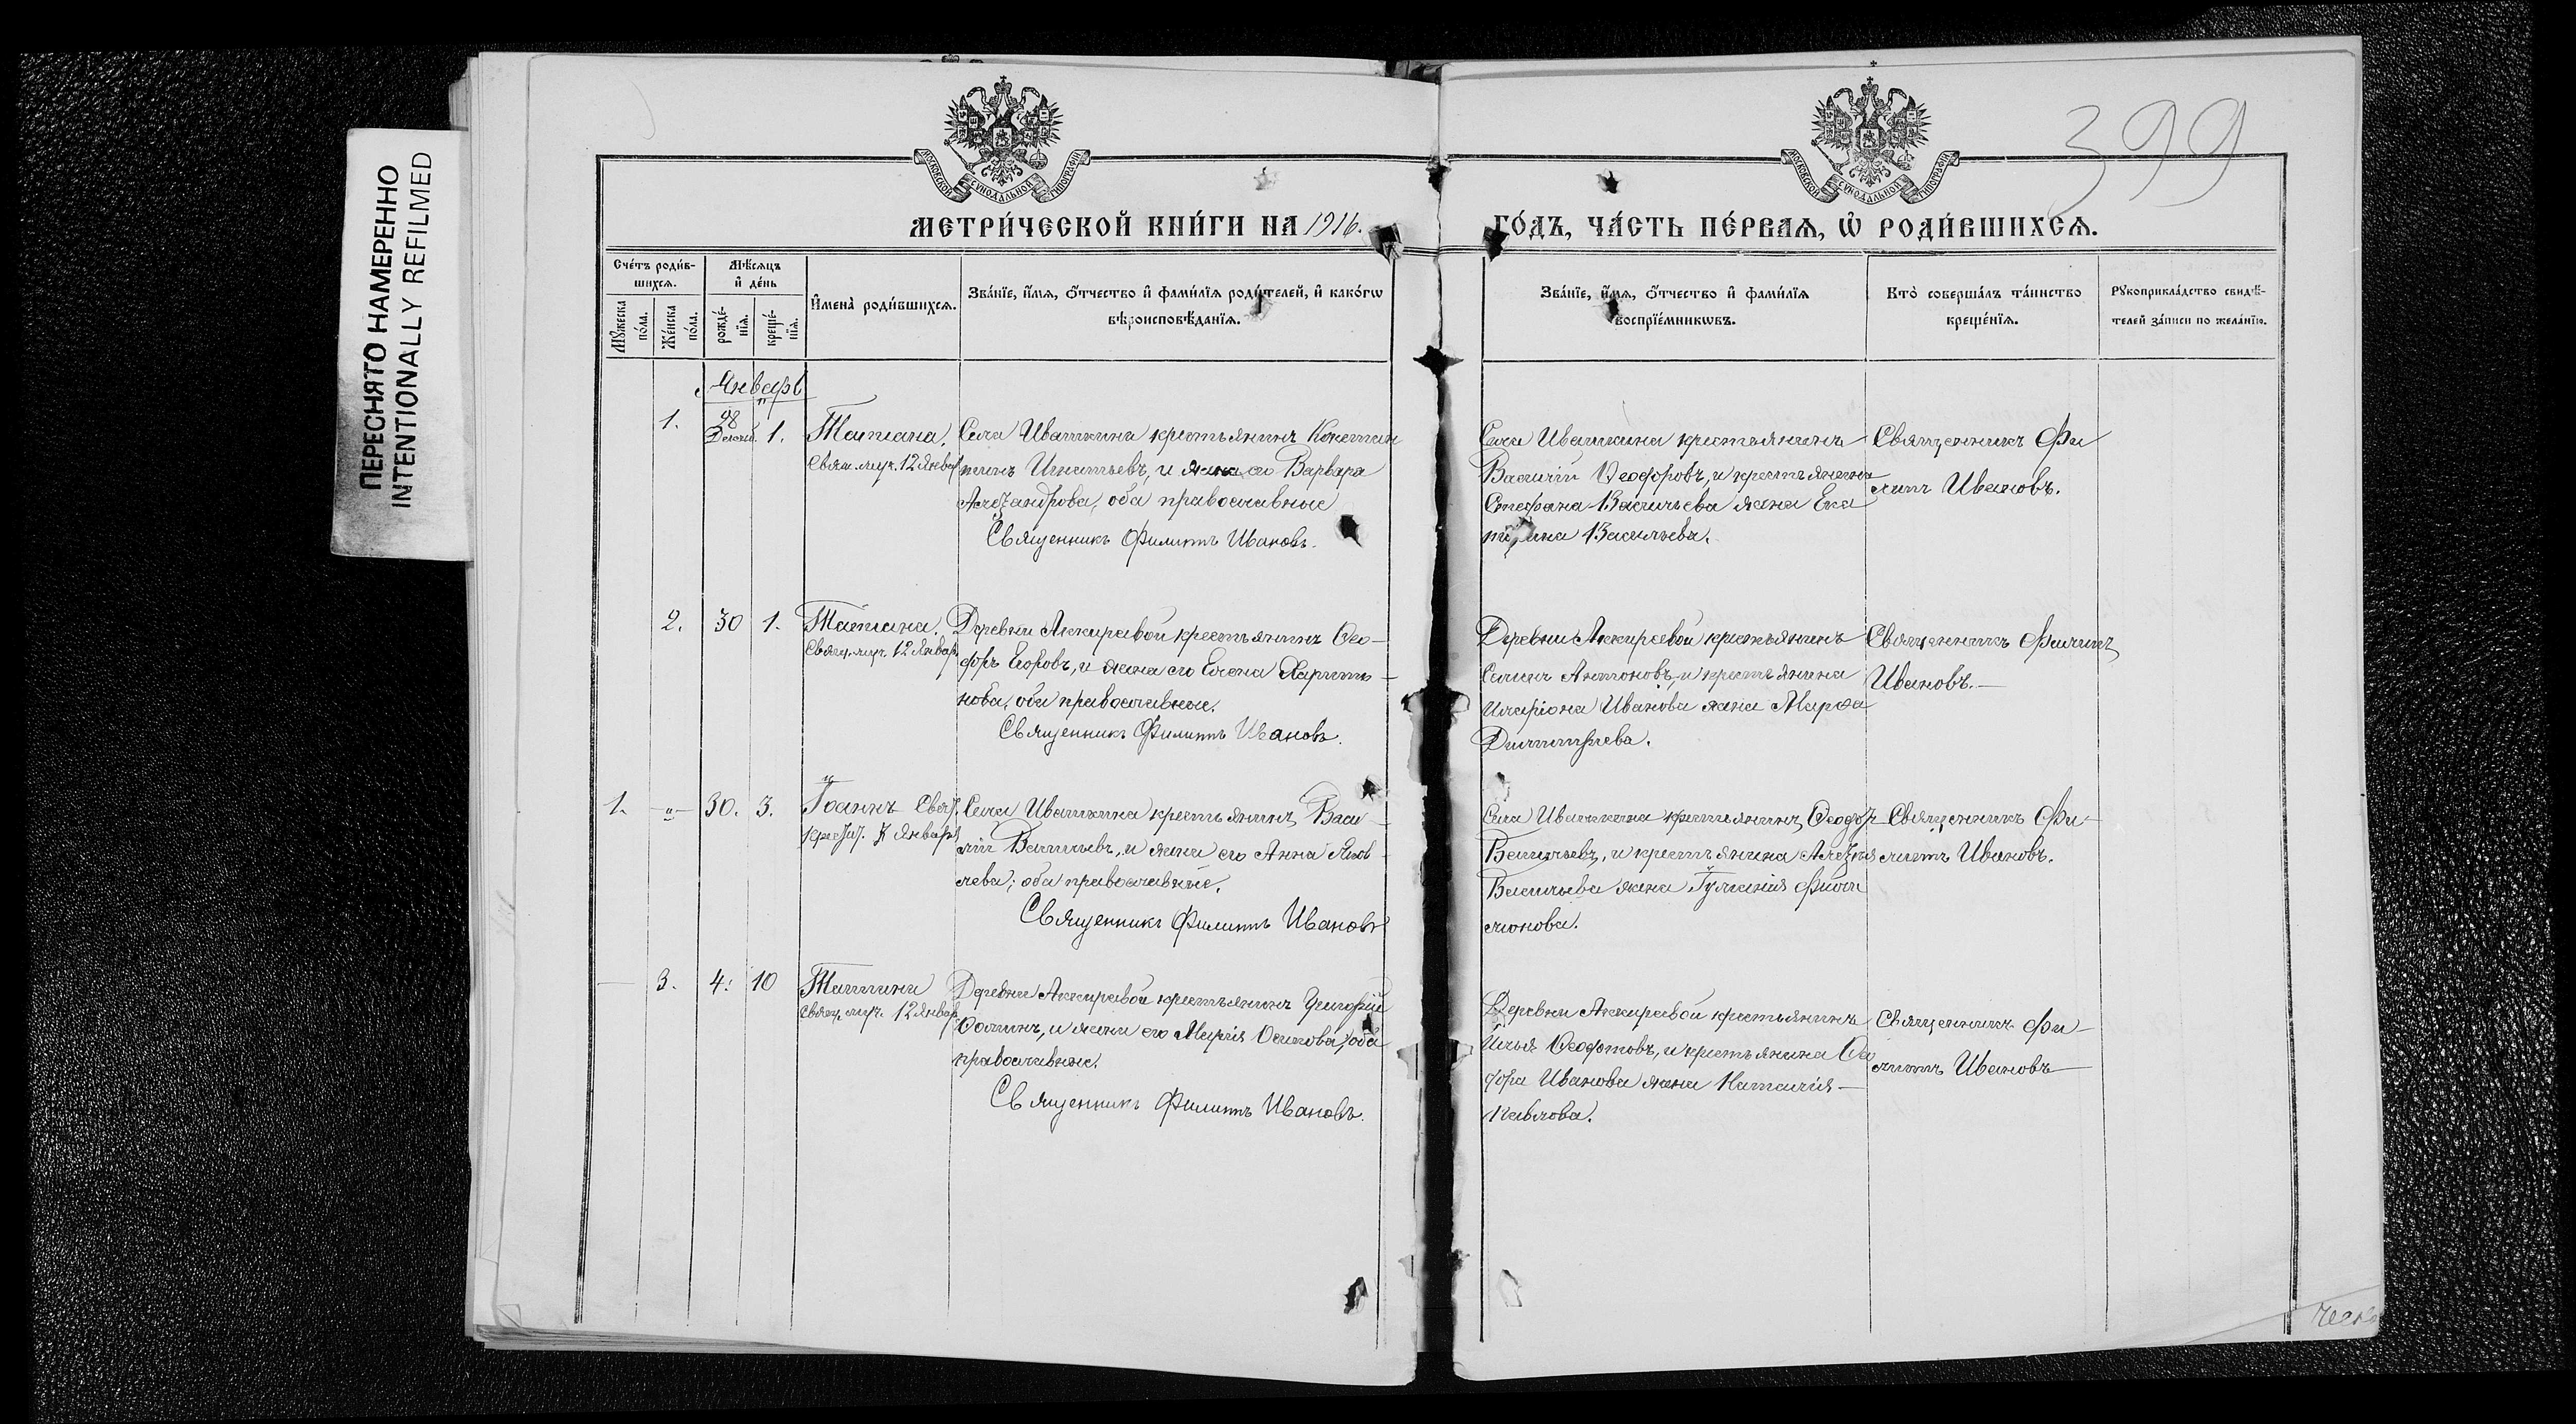 ПЕРЕСНЯТО НАМЕРЕННО
INTENTIONALLY REFILMED
399
МОСКОВСКОЙ СѴНОДАЛЬНОЙ ТИПОГРАФІИ
МОСКОВСКОЙ СѴНОДАЛЬНОЙ ТИПОГРАФІИ
МЕТРИ́ЧЕСКОЙ КНИ́ГИ НА 1916.
ГО́ДЪ, ЧА́СТЬ ПЕ́РВАѦ, Ѡ҆ РОДИ́ВШИХСѦ.
Сче́тъ роди́в-
шихсѧ.
Мꙋ́жеска
по́ла.
Же́нска
по́ла.
Мѣ́сѧцъ
и҆ де́нь
рожде́-
нїѧ.
креще́-
нїѧ.
И҆мена̀ роди́вшихсѧ.
Зва́нїе, и҆́мѧ, ѻ҆́тчество и҆ фами́лїѧ роди́телей, и҆ како́гѡ
вѣроисповѣ́данїѧ.
Зва́нїе, и҆́мѧ, ѻ҆́тчество и҆ фами́лїѧ
воспрїе́мникѡвъ.
Кто̀ соверша́лъ та́инство
креще́нїѧ.
Рꙋкоприкла́дство свидѣ́-
телей за́писи по жела́нїю.
Январь
1. 28 1. Татіана.
Свят. муч. 12 Январ
Села Ивашкина крестьянинъ Констан
тинъ Игнатьевъ, и жена его Варвара
Александрова, оба православные
Священникъ Филиппъ Ивановъ.
Села Ивашкина крестьянинъ
Василій Ѳеодоровъ, и крестьянина
Стефана Васильева жена Ека
терина Васильева.
Священникъ Фи
липпъ Ивановъ.
2. 30 1. Татіана.
Свят. муч. 12 Январ.
Деревни Аккиревой крестьянинъ Ѳео-
доръ Егоровъ, и жена его Елена Харито-
нова, оба православные.
Священникъ Филиппъ Ивановъ.
Деревни Аккиревой крестьянинъ
Антоновъ, и крестьянина
Иларіона Иванова жена Марѳа
Димитріева.
Священникъ Филиппъ
Ивановъ.
1. " 30. 3. Іоаннъ Свят.
7 Января
Села Ивашкина крестьянинъ Васи-
лій Васильевъ, и жена его Анна Яков-
лева; оба православные.
Священникъ Филиппъ Ивановъ
Села Ивашкина крестьянинъ Ѳеодоръ
Васильевъ, и крестьянина Алексѣя
Васильева жена Іуліанія Фила
монова.
Священникъ Фи-
липпъ Ивановъ.
3. 4. 10 Татіана
Свят. муч. 12 Январ
Деревни Аккиревой крестьянинъ Григорій
Ѳоминъ, и жена его Марія Осипова, оба
православные.
Священникъ Филиппъ Ивановъ.
Деревни Аккиревой крестьянинъ
Илья и крестьянина Ѳео
дора Иванова жена Наталія
Павлова.
Священникъ Фи-
липпъ Ивановъ